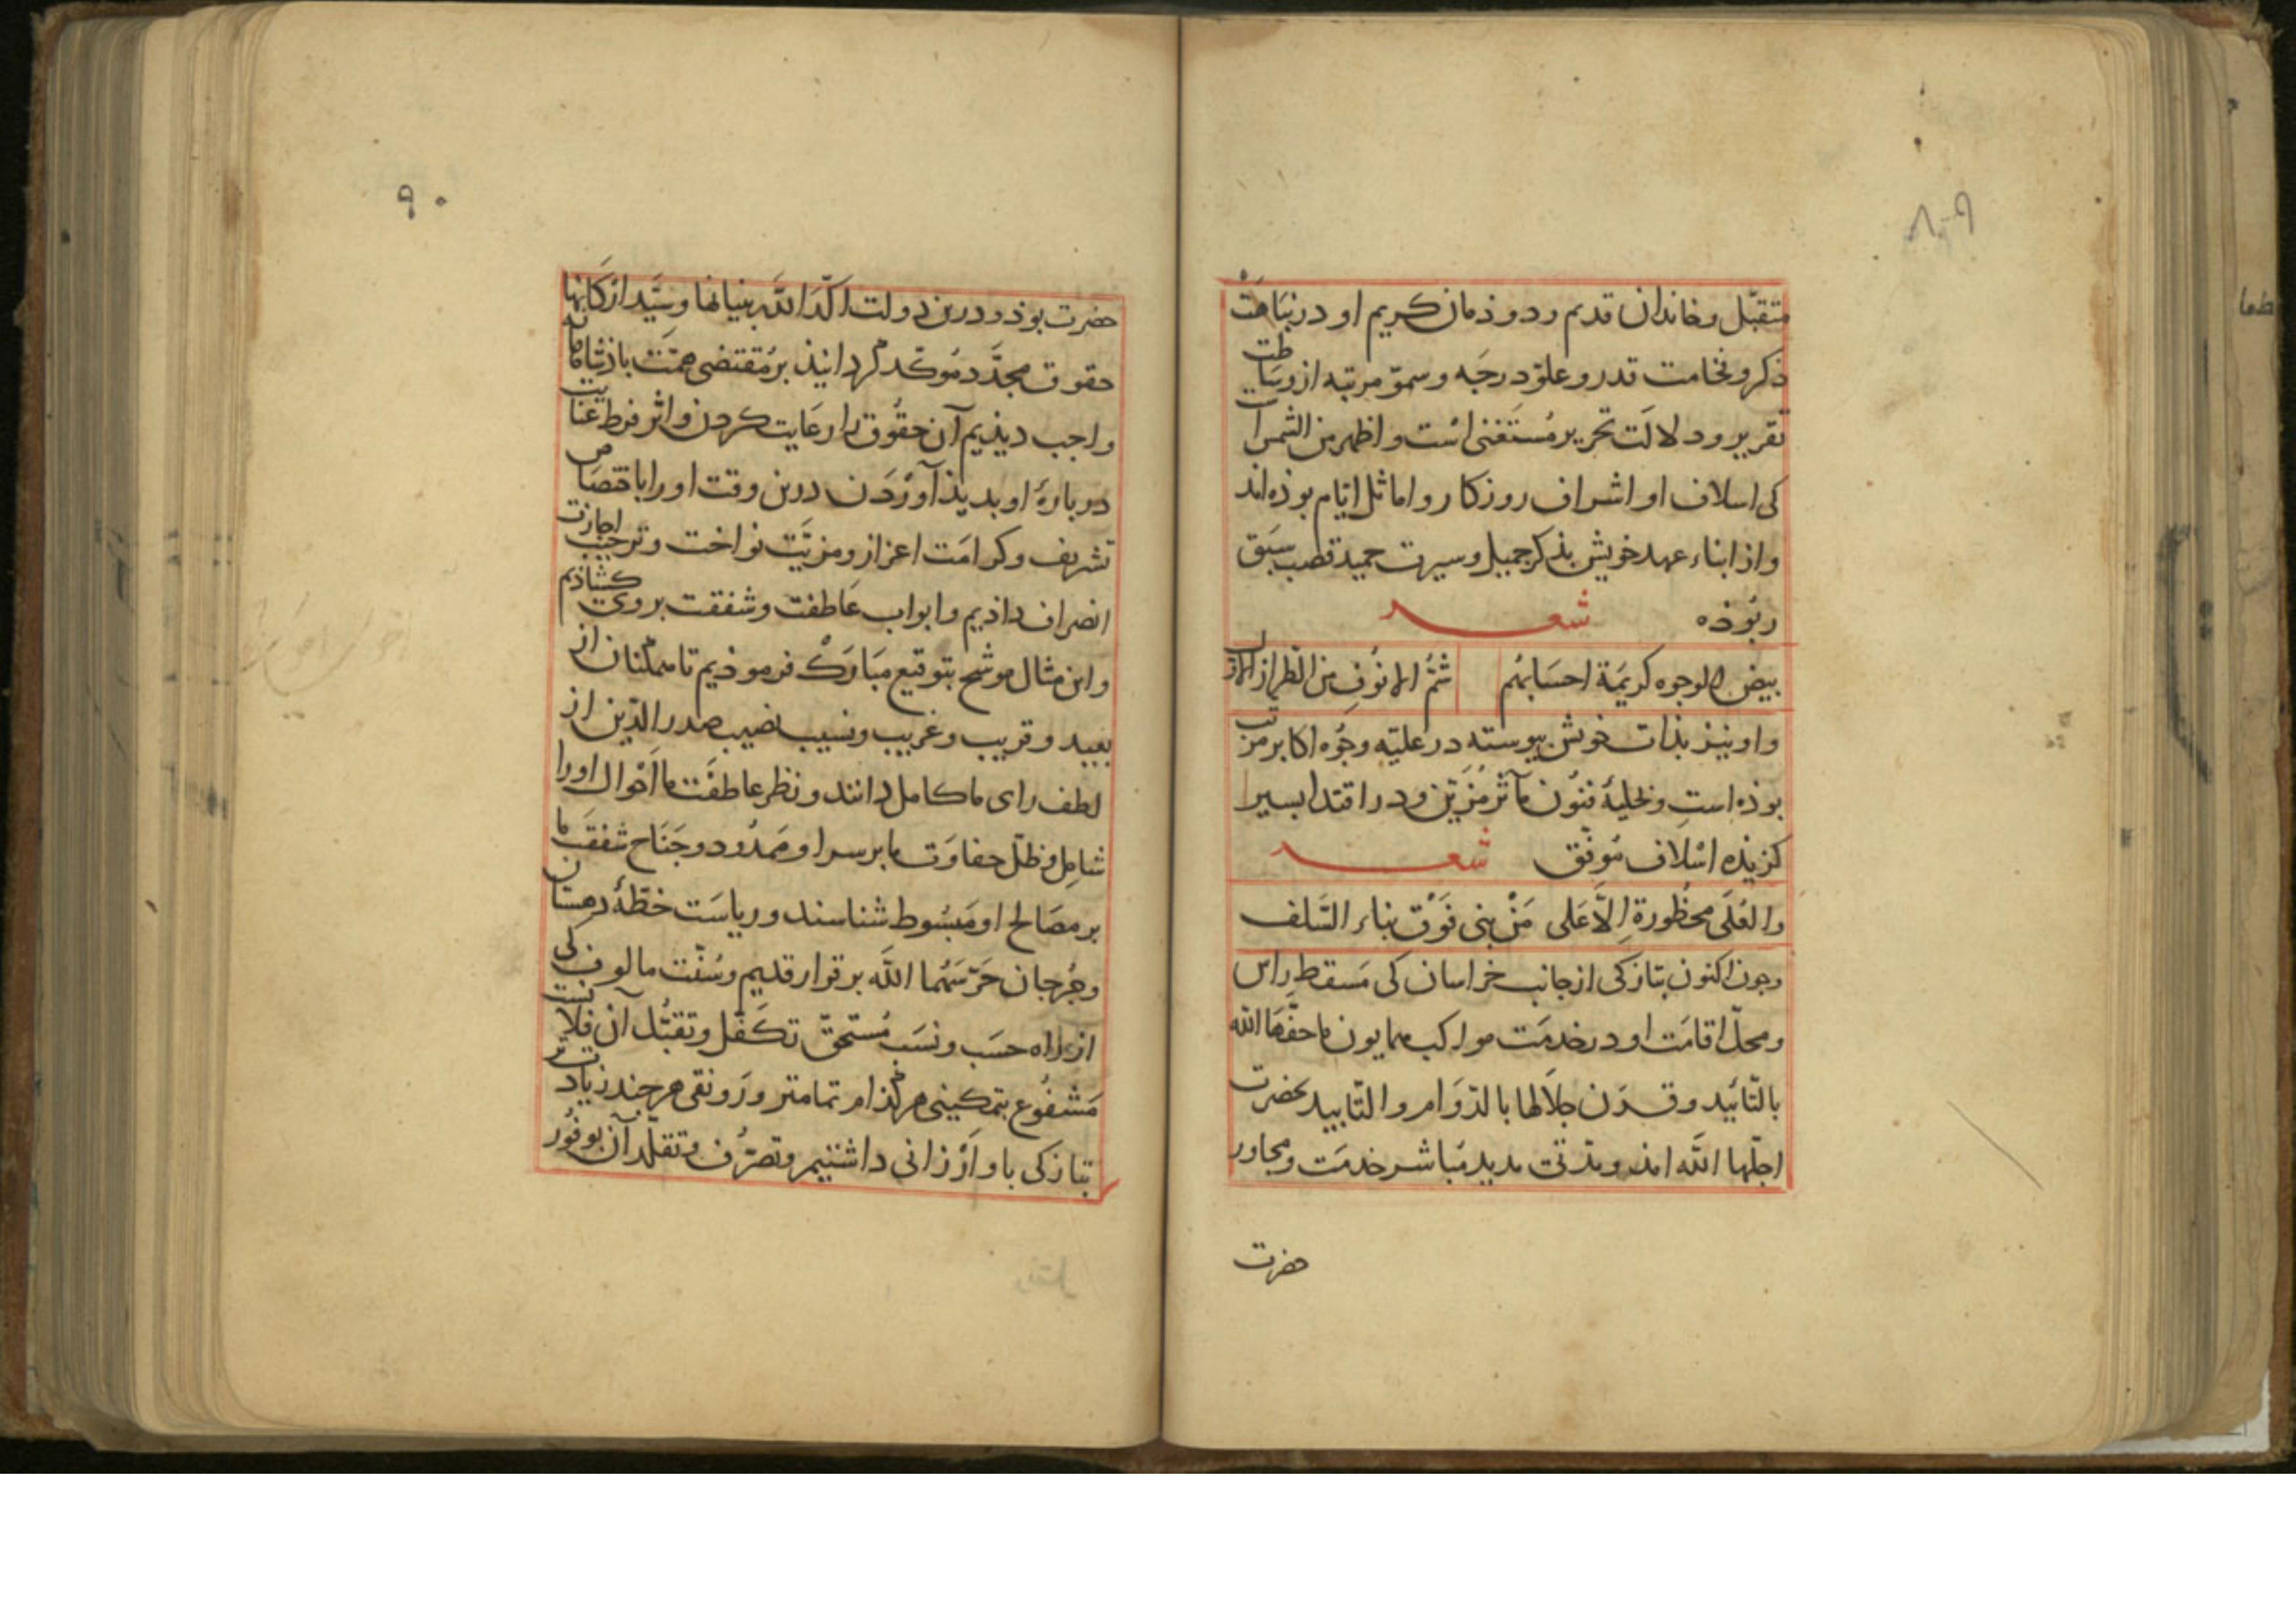 متقبّل و خاندان قدیم و دوذمان کریم او در نباهت
ذکر و فخامت قدر و علوّ درجه و سموّ مرتبه از وساطت
تقریر و دلالت تحریر مُستَغنی است و اظهر من الشمس است
کی اسلاف او اشراف روزکار و اماثل ایّام بوذه‌اند
و از ابناء عهد خویش بذکر جمیل و سیرت حمید قصب سَبَق
ربوذه شعـــر
بیض الوجوه کریمَة احسَابهُم شُمُّ الانُوفِ من الطراز الاوّل
و او نیز بذات خویش پیوسته در علیّه وجُوه اکابر مرتّب
بوذه است و بحلیهٔ فنُون مآثر مُزَیّن و در اقتدا بسیر
کزیذه اسْلاف مُوفّق شعـــر
والعُلَی محظُورة اِلاَّ عَلی مَنْ بنی فَوْق بناء السَّلف
وجون اکنون بتازکی از جانب خراسان کی مَسقط راس
ومحلّ اقامَت او در خدمَت مواکب همایون ما حفَّهَا الله
بالتّائید و قرن جلالها بالدّوَام والتّابید بحضرت
اجلّها الله امذ و مدّتی مدید مُباشر خدمَت و مجاور
حضرت
۹۰
حضرت بوذ و درین دولت اکّدَ اللّه بنیانها و شیّد ارکانها
حقوق مجدَّد مُوکّد کردانیذ بر مُقتضی همّت باذشاهانه
واجب دیذیم آن حقُوق را رعَایت کردن و اثر فرط عنایت
دربارهٔ او بدیذ آوَرْدَن درین وقت او را باختصاص
تشریف و کرامَت اعزاز و مزیَّت نواخت و ترحیب اجازت
انصراف داذیم و ابواب عاطفت و شفقت بر وی کشاذیم
و این مثال موشّح بتوقیع مبَارَکْ فرموذیم تا همکنان از
بعید و قریب و غریب و نسیب نصیب صدرالدّین از
لطف رای ما کامل دانند و نظر عاطفَت ما اَحْوال او را
شامِل و ظلّ حفاوَت ما بر سر او ممَدُود و جَنَاح شفقَت ما
بر مصَالح او مَبسُوط شناسند و ریاسَت خطّهٔ دهستان
و جُرجان حَرّسَهُما اللّه بر قرار قدیم و سُنّت مالوف کی
از راه حسَب و نسَب مُستحقّ تکفّل و تقبُّل آن فلانیست
مَشفُوع بتمکینی هر کذام تمامتر و رَونقی هر جند زیادت‌تر
بتازکی باو اَرْزانی داشتیم و تصرُّف و تقلّد آن بوفُور